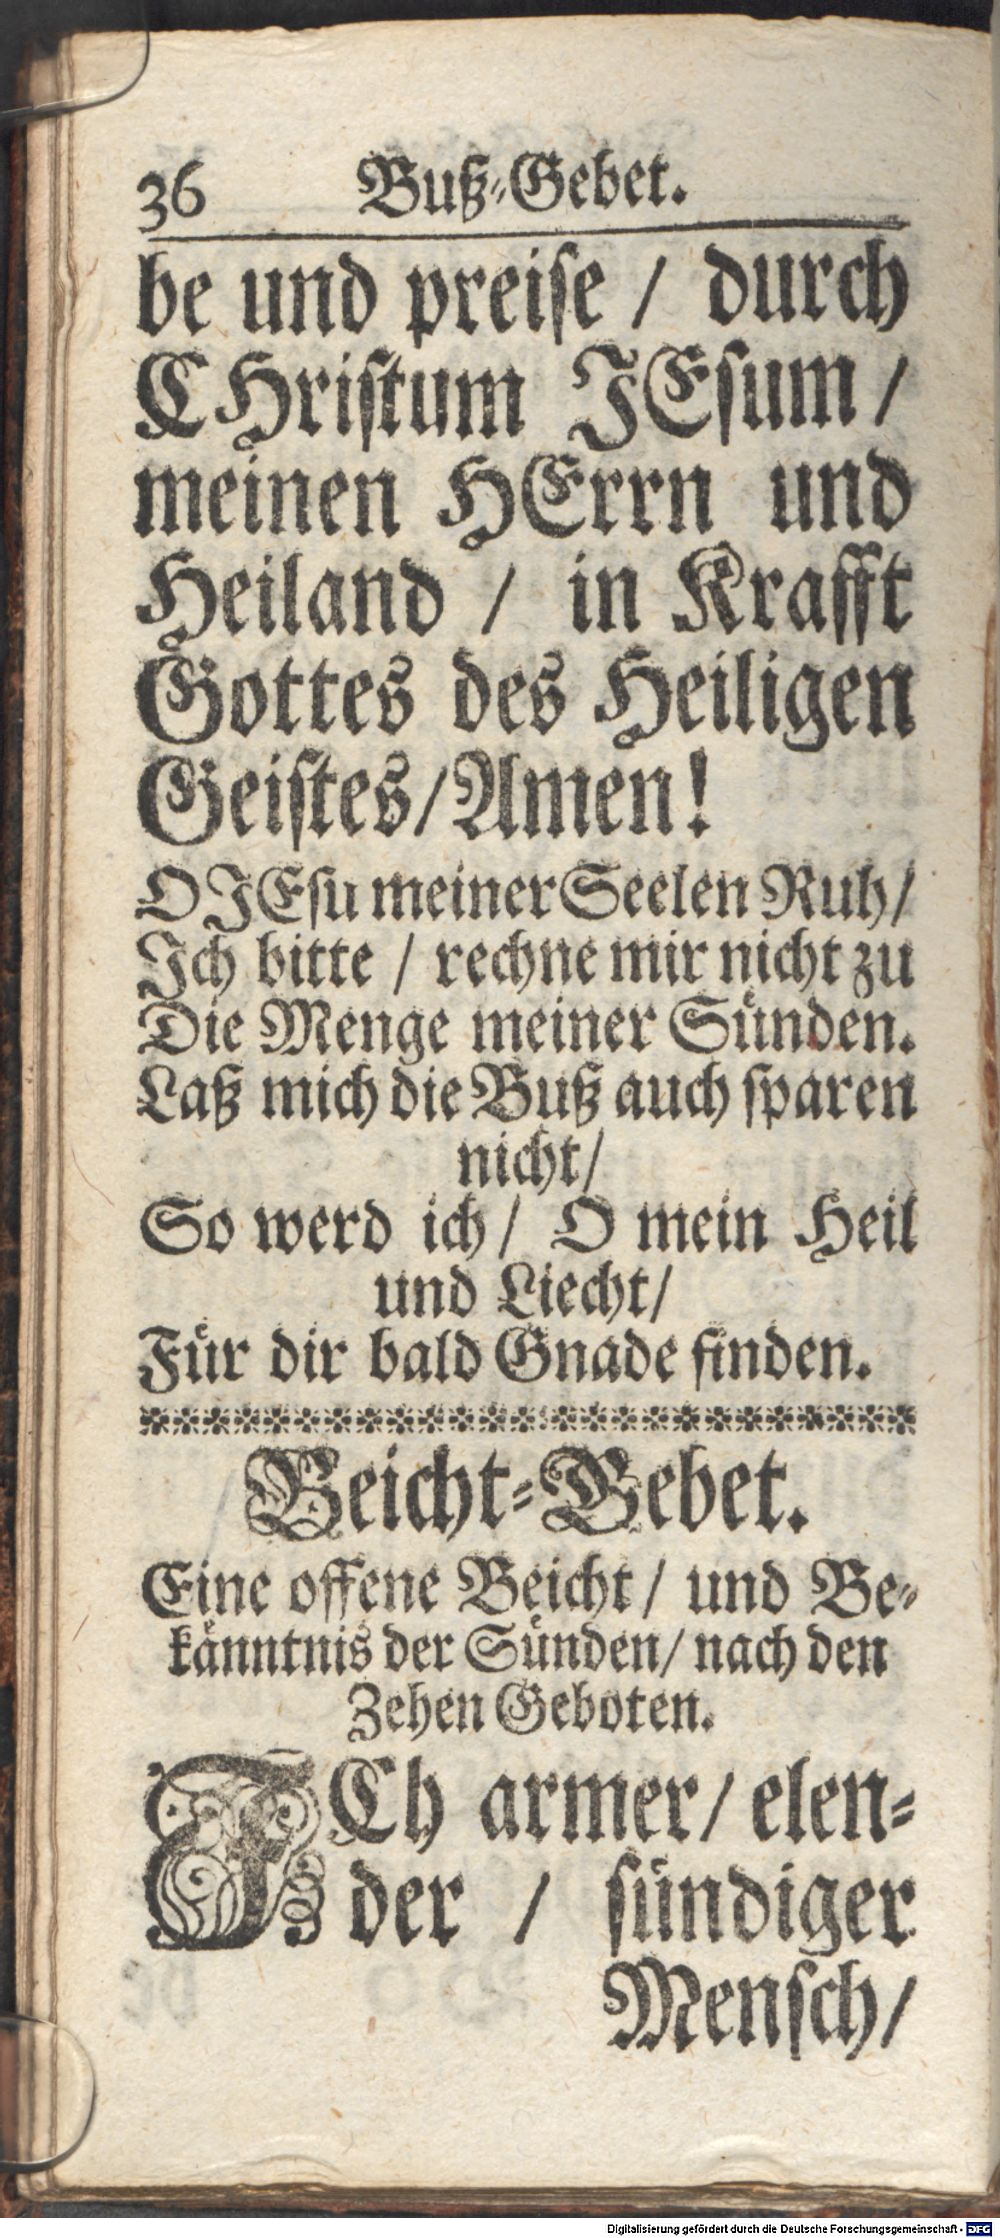 36 Buß-Gebet.
be und preiſe / durch
CHriſtum JEſum /
meinen HErrn und
Heiland / in Krafft
Gottes des Heiligen
Geiſtes / Amen!
O JEſu meiner Seelen Ruh /
Jch bitte / rechne mir nicht zu
Die Menge meiner Suͤnden.
Laß mich die Buß auch ſparen
nicht /
So werd ich / O mein Heil
und Liecht /
Fuͤr dir bald Gnade finden.
Beicht-Gebet.
Eine offene Beicht / und Be-
kaͤnntnis der Suͤnden / nach den
Zehen Geboten.
JCh armer / elen-
der / ſuͤndiger
Menſch /
Digitalisierung gefördert durch die Deutsche Forschungsgemeinschaft - DFG